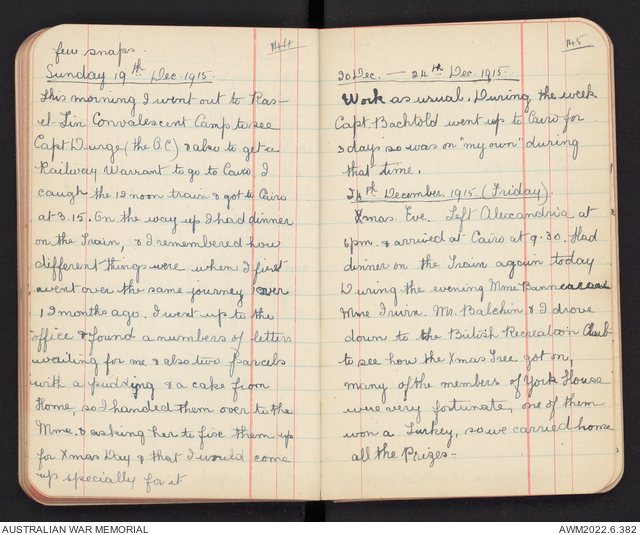 144
few snaps.
Sunday 19th Dec. 1915.
This morning I went out to Ras-
el-Tin Convalescent Camp to see
Capt Durge (the O.C) & also to get a
Railway Warrant to go to Cairo. I
caugh the 12 noon train & got to Cairo
at 3.15. On the way up I had dinner
on the Train, & I remembered how
different things were when I first
went over the same journey over
12 months ago. I went up to the
office & found a numbers of letters
waiting for me & also two parcels
with a pudding & a cake from
Home, so I handed them over to the
Mme. & asking her to fix them up
for Xmas Day & that I would come
up specially for it
145
20 Dec. — 24th Dec. 1915.
Work as usual. During the week
Capt. Bachtold went up to Cairo for
3 days so was on "my own" during
that time.
24th December 1915 (Friday).
Xmas Eve. Left Alexandria at
6pm. & arrived at Cairo at 9.30. Had
dinner on the Train again today
During the evening Mme
Mme Ms. Balchin & I drove
down to the British Recreation Club
to see how the Xmas Tree got on,
many of the members of York House
were very fortunate, one of them
won a Turkey, so we carried home
all the Prizes-
AUSTRALIAN WAR MEMORIAL
AWM2022.6.382